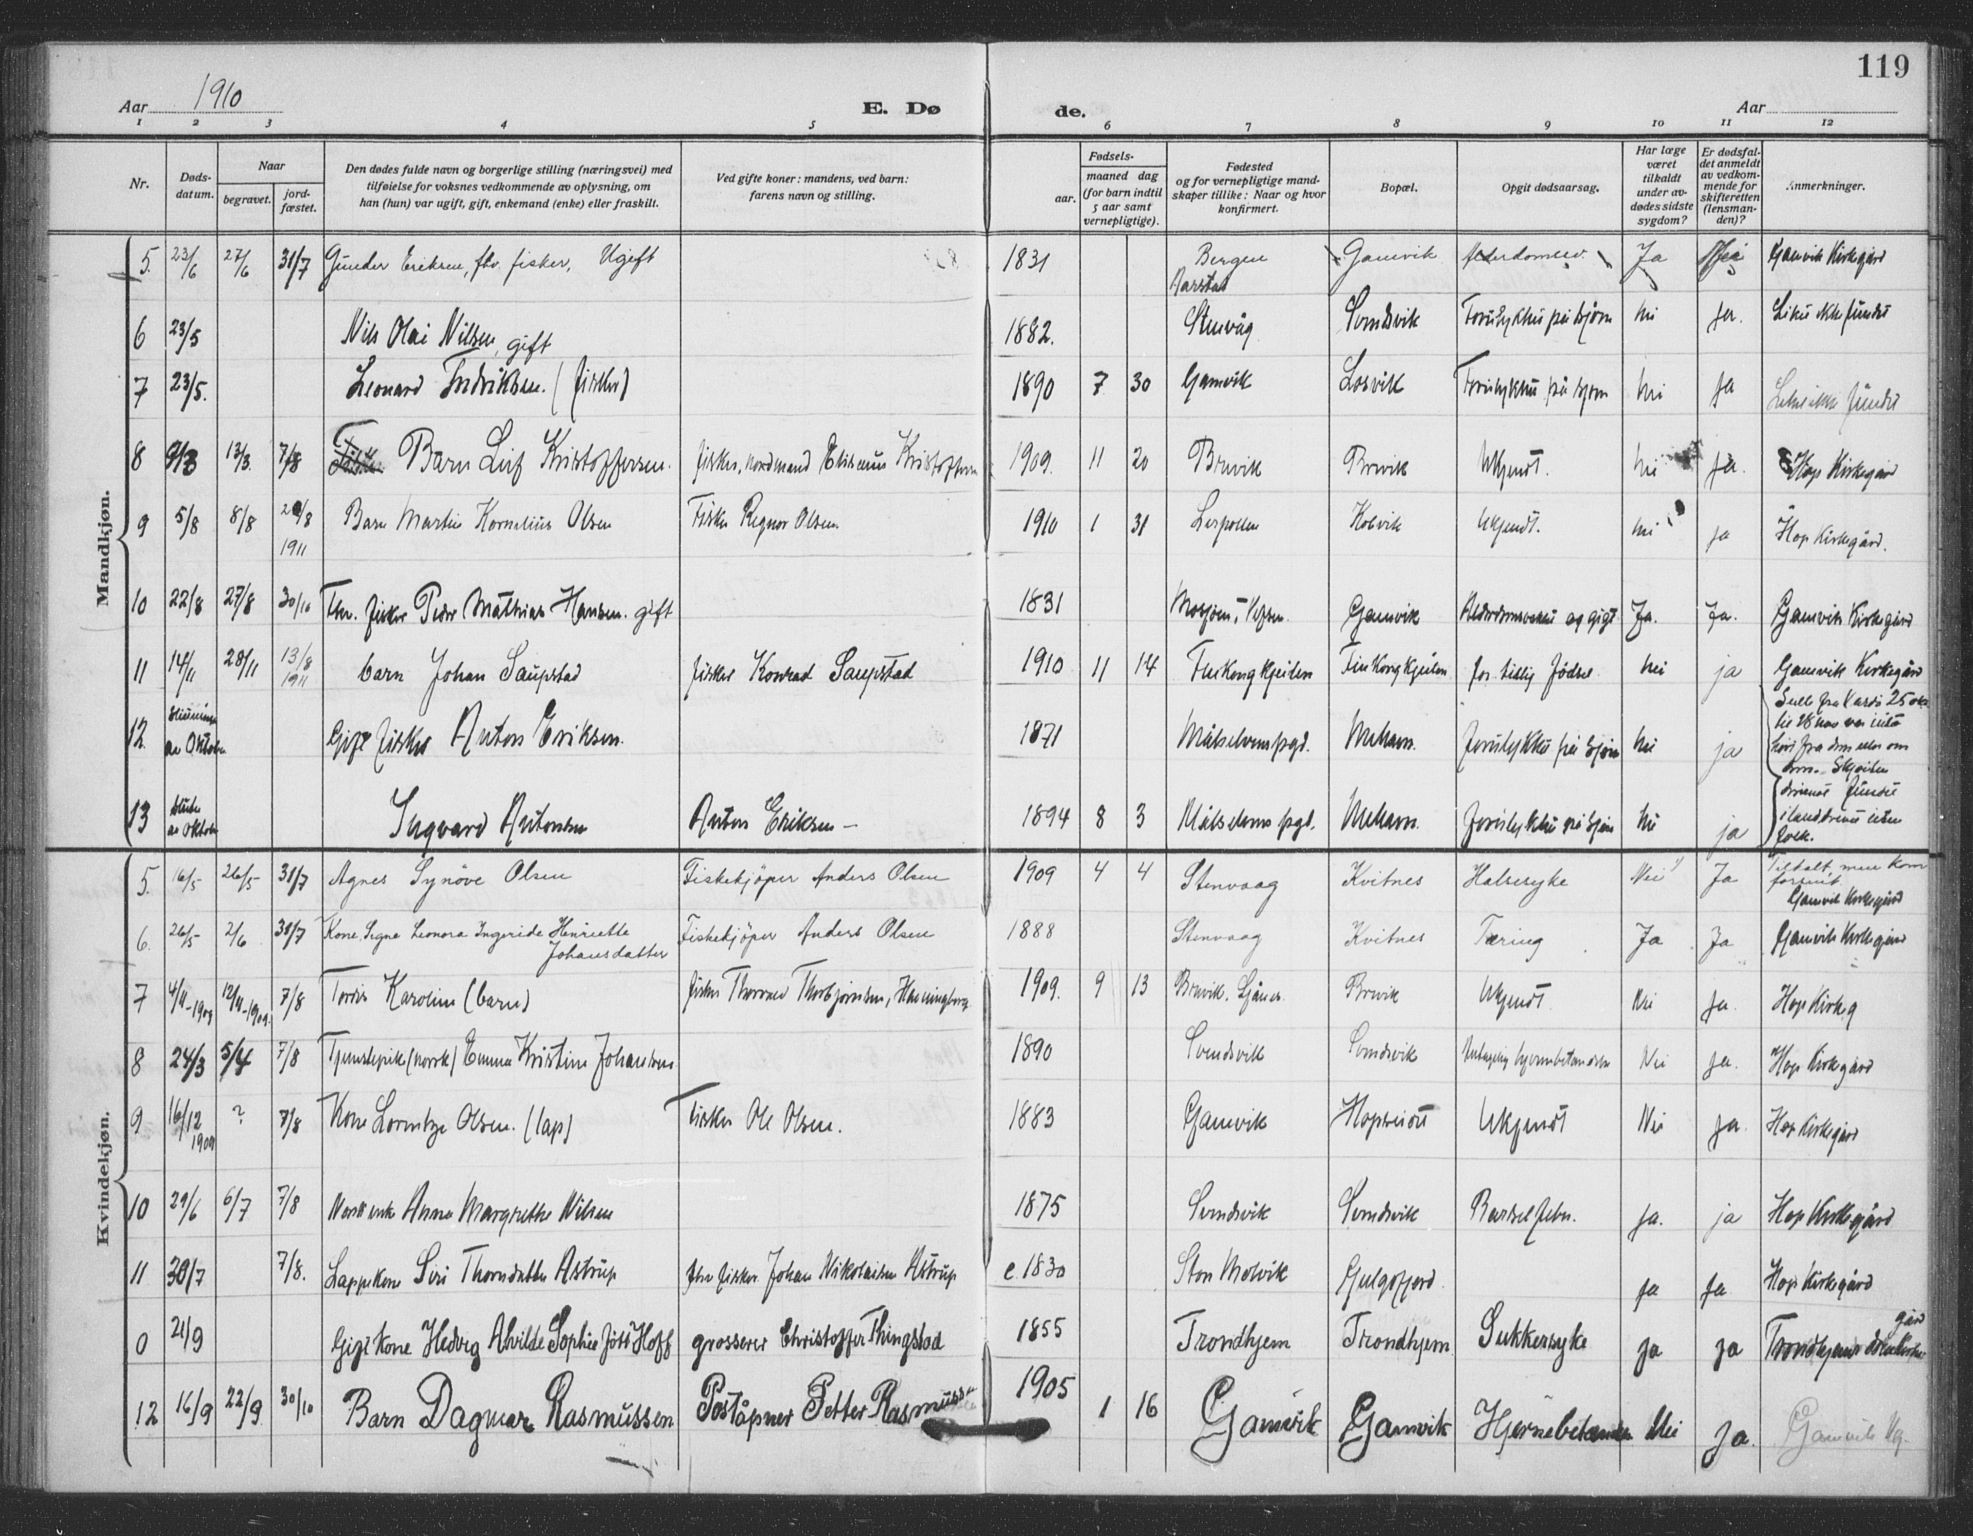 119
Aar 1910
E. Dø
de.
Aar
1 2 3 4 5 6 7 8 9 10 11 12
Nr.
Døds-
datum.
Naar
begravet.
jord-
fæstet.
Den dødes fulde navn og borgerlige stilling (næringsvei) med
tilføielse for voksnes vedkommende av oplysning, om
han (hun) var ugift, gift, enkemand (enke) eller fraskilt.
Ved gifte koner: mandens, ved barn:
farens navn og stilling.
Fødsels-
aar.
maaned dag
(for barn indtil
5 aar samt
vernepligtige).
Fødested
og for vernepligtige mand-
skaper tillike: Naar og hvor
konfirmert.
Bopæl.
Opgit dødsaarsag.
Har læge
været
tilkaldt
under av-
dødes sidste
sygdom?
Er dødsfal-
det anmeldt
av vedkom-
mende for
skifteretten
(lensman-
den)?
Anmerkninger.
Mandkjøn.
5. 23/6 27/6 31/7 Gunder Eriksen, fhv. fisker, Ugift 1831 Bergen Aarstad Gamvik Ja Gamvik Kirkegård
6 23/5 Nils Olai Nilsen, gift 1882. Stenvåg Sandsvik Forulykket på sjøen nei Ja. Liket ikke fundet
7 23/5. Leonard Fredriksen. (fisker) 1890 7 30 Gamvik Losvik Forulykket på sjøen nei Ja Liket ikke fundet
8 9/3 13/3 7/8 Barn Leif Kristoffersen. fisker, nordmand Kristoffersen 1909. 11 20 Brevik Brevik Ukjendt. nei Ja. Hop Kirkegård
9 5/8 8/8 20/8 1911 Barn Martin Kornelius Olsen Fisker Regnor Olsen. 1910 1 31 Lerpollen Kobvik Ukjendt. nei ja Hop Kirkegård.
10 22/8 27/8 30/10 Fhv. fisker Peder Mathias Hansen. gift 1831 Mosjøen, Vefsen. Gamvik Alderdomssvakhet og gigt Ja. Ja. Gamvik Kirkegård
11 14/11 28/11 13/8 1911 barn Johan Saupstad fisker Konrad Saupstad 1910 11 14 Finkongkjeilen Finkongkjeilen for tidlig fødsel nei ja Gamvik Kirkegård
12. Slutningen av Oktober Gift fisker Anton Eriksen. 1871 Målselvens pgd. Mehavn. forulykket på sjøen nei ja
13 Slutn. av Oktober Ingvard Antonsen Anton Eriksen - 1894 8 3 Målselvens pgd. Mehavn. forulykket på sjøen nei ja
Seilt fra Vardø 25 okt
hørt fra dem eller om
dem. Skjøiten
drivende fundet
iland uten
folk.
Kvindekjøn.
5. 16/5 26/5 31/7 Agnes Synöve Olsen Fiskekjöper Anders Olsen 1909 4 4 Stenvaag Kvitnes Halsesyke Nei 1) Ja 1) Tilkalt, men kom
forsent.
Gamvik Kirkegård
6. 26/5 2/6 31/7 Kone Signe Leonora Ingeride Henriette
Johansdatter Fiskekjöper Anders Olsen 1888 Stenvaag Kvitnes Tæring Ja Ja Gamvik Kirkegård
7 4/11-1909 12/11-1909 7/8 Tordis Karoline (barn) fisker Thorbjørnsen, 1909. 9 13 Brevik. Brevik Ukjendt Nei Ja. Hop Kirkeg
8 24/3 5/4 7/8 Tjenestepike (norsk) Emma Kristine Johansen 1890 Sandsvik Sandsvik Nei Ja. Hop Kirkegård
9 16/12 1909 ? 7/8 Kone Lorentze Olsen. (lap) Fisker Ole Olsen. 1883 Gamvik Hopseidet Ukjendt Nei Ja. Hop Kirkegård
10 29/6 6/7 7/8 Norsk enke Anna Margrethe Nilsen 1875 Sandsvik Sandsvik Barselfeber. ja. ja Hop Kirkegård
11 30/7 7/8. Lappekone Siri Thomsdatter Astrup fhv fisker Johan Nikolaisen Astrup c. 1830 Store Molvik Gulgofjord. Ja Ja Hop Kirkegård
0 21/9 Gift Kone Hedvig Alvilde Sophie Hoff grosserer Christoffer Thingstad 1855 Trondhjem Trondhjem Sukkersyke ja ja Trondhjems
12 16/9 22/9 30/10 Barn Dagmar Rasmussen Poståpner Petter Rasmussen 1905 1 16 Gamvik Gamvik Hjernebetændelse Nei Ja. Gamvik Kg.